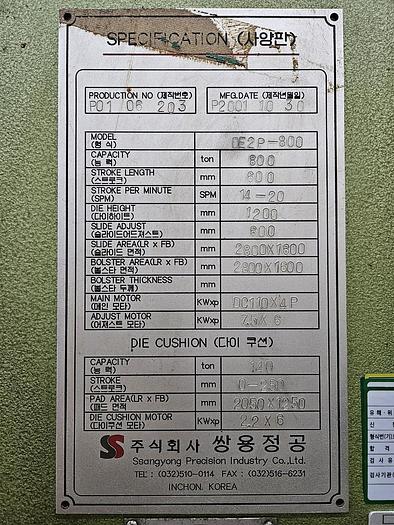 SPECIFICATION (사양판)
PRODUCTION NO (제작번호) MFG.DATE (제작년월일)
P01 06 203 P2001 10 30
MODEL (형 식) DE2P-800
CAPACITY (능 력) ton 800
STROKE LENGTH (스트로크) mm 600
STROKE PER MINUTE (SPM) SPM 14-20
DIE HEIGHT (다이하이트) mm 1200
SLIDE ADJUST (슬라이드어져스트) mm 600
SLIDE AREA(LR x FB) (슬라이드 면적) mm 2800X1600
BOLSTER AREA(LR x FB) (볼스타 면적) mm 2800X1600
BOLSTER THICKNESS (볼스타 두께) mm
MAIN MOTOR (메인 모타) KWxp DC110X4P
ADJUST MOTOR (어져스트 모타) KWxp 7.5X 6
DIE CUSHION (다이 쿠션)
CAPACITY (능 력) ton 140
STROKE (스트로크) mm 0-250
PAD AREA(LR x FB) (패드 면적) mm 2050X1250
DIE CUSHION MOTOR (다이쿠션 모타) KWxp 2.2 X 6
SS 주식회사 쌍용정공
Ssangyong Precision Industry Co.,Ltd.
TEL : (032)510-0114 FAX : (032)516-6231
INCHON, KOREA